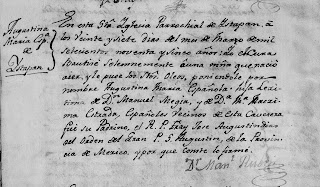 Augustina
Maria Española
de
Istapan
En esta Sta. Iglesia Parrochial de Istapan, à
los Veinte y siete dias del mes de Marzo de mil
setecientos noventa y cinco años: Yo el Cura
Bautizé Solemnemente à una niña que nació
ayer, y le puse los Stos. Oleos, poniendole por
nombre Augustina Maria Española hija Lexi-
tima de Dn. Manuel Mexia, y de Da. Ma.
Estrada, Españoles Vecinos de esta Cavecera
fué su Padrino, el R. P. Fray Jose Augustin
del Orden del Gran P. S. Augustin de la Provin-
cia de Mexico, y por que Conste lo firmé.
Dr. Manl.